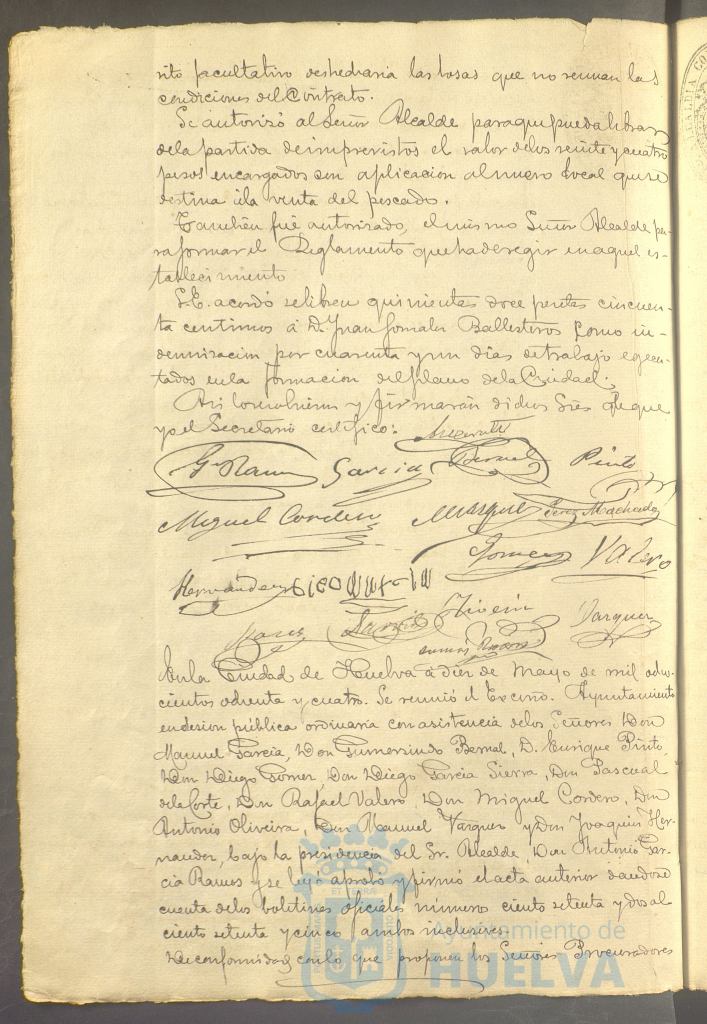 rito facultativo deshecharia las losas que no reunan las
condiciones del Contrato.
Se autorizó al Señor Alcalde para que pueda librar
de la partida de imprevistos el valor de los veinte y cuatro
pesos encargados con aplicacion al nuevo local que se
destina á la venta del pescado.
Tambien fué autorizado, el mismo Señor Alcalde pa-
ra formar el Reglamento que ha de regir en aquel es-
tablecimiento
S.E. acordó se libren quinientas doce pesetas cincuen-
ta centimos á D. Juan Gonzalez Ballesteros como in-
demnizacion por cuarenta y un dias de trabajo ejecu-
tados en la formacion del plano de la Ciudad.
Asi lo resolvieron y firmarán dichos Sres de que
yo el Secretario certifico:
Gª Ramos Garcia Bernal Pinto
Miguel Cordero Marquez Perez Machado
Gomez Valero
Hernandez
Garcia Oliveira Vazquez
En la Ciudad de Huelva á diez de Mayo de mil ocho-
cientos ochenta y cuatro. Se reunió el Excmo. Ayuntamiento
en sesion pública ordinaria con asistencia de los Señores Don
Manuel Garcia, Don Gumersindo Bernal, D. Enrique Pinto,
Don Diego Gomez, Don Diego Garcia Sierra, Don Pascual
de la Corte, Don Rafael Valero, Don Miguel Cordero, Don
Antonio Oliveira, Don Manuel Vazquez y Don Joaquin Her-
nandez, bajo la presidencia del Sr. Alcalde, Don Antonio Gar-
cia Ramos y se leyó aprobó y firmó el acta anterior dandose
cuenta de los boletines oficiales números ciento setenta y dos al
ciento setenta y cinco ambos inclusives.
De conformidad con lo que proponen los Señores Procuradores
Ayuntamiento de
HUELVA